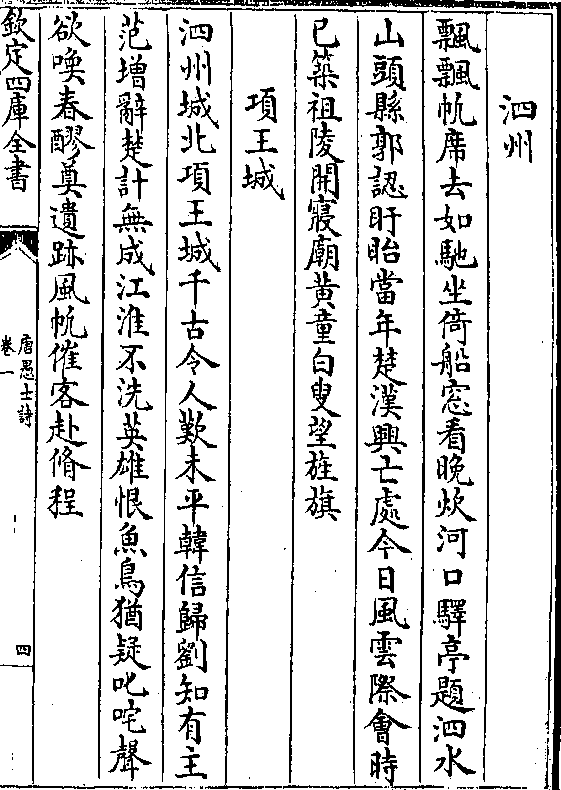 泗州
飄飄帆席去如馳坐倚船窓看晚炊河口驛亭題泗水
山頭縣郭認盱眙當年楚漢興亡處今日風雲際㑹時
已築祖陵開寢廟黄童白叟望旌旗
項王城
泗州城北項王城千古令人歎未平韓信歸劉知有主
范增辭楚計無成江淮不洗英雄恨魚鳥猶疑叱咤聲
欲喚春醪奠遺跡風帆催客赴脩程
欽定四庫全書
唐愚士詩
卷一
四